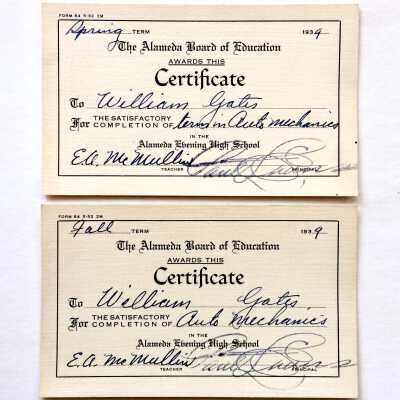 FORM 64 5-52 2M
Spring TERM 1939
The Alameda Board of Education
AWARDS THIS
Certificate
To William Gates
For THE SATISFACTORY COMPLETION OF term in Auto mechanics
IN THE
Alameda Evening High School
E.A. McMullin
TEACHER PRINCIPAL
FORM 64 5-52 2M
Fall TERM 1939
The Alameda Board of Education
AWARDS THIS
Certificate
To William Gates
For THE SATISFACTORY COMPLETION OF Auto Mechanics
IN THE
Alameda Evening High School
E.A. McMullin
TEACHER PRINCIPAL